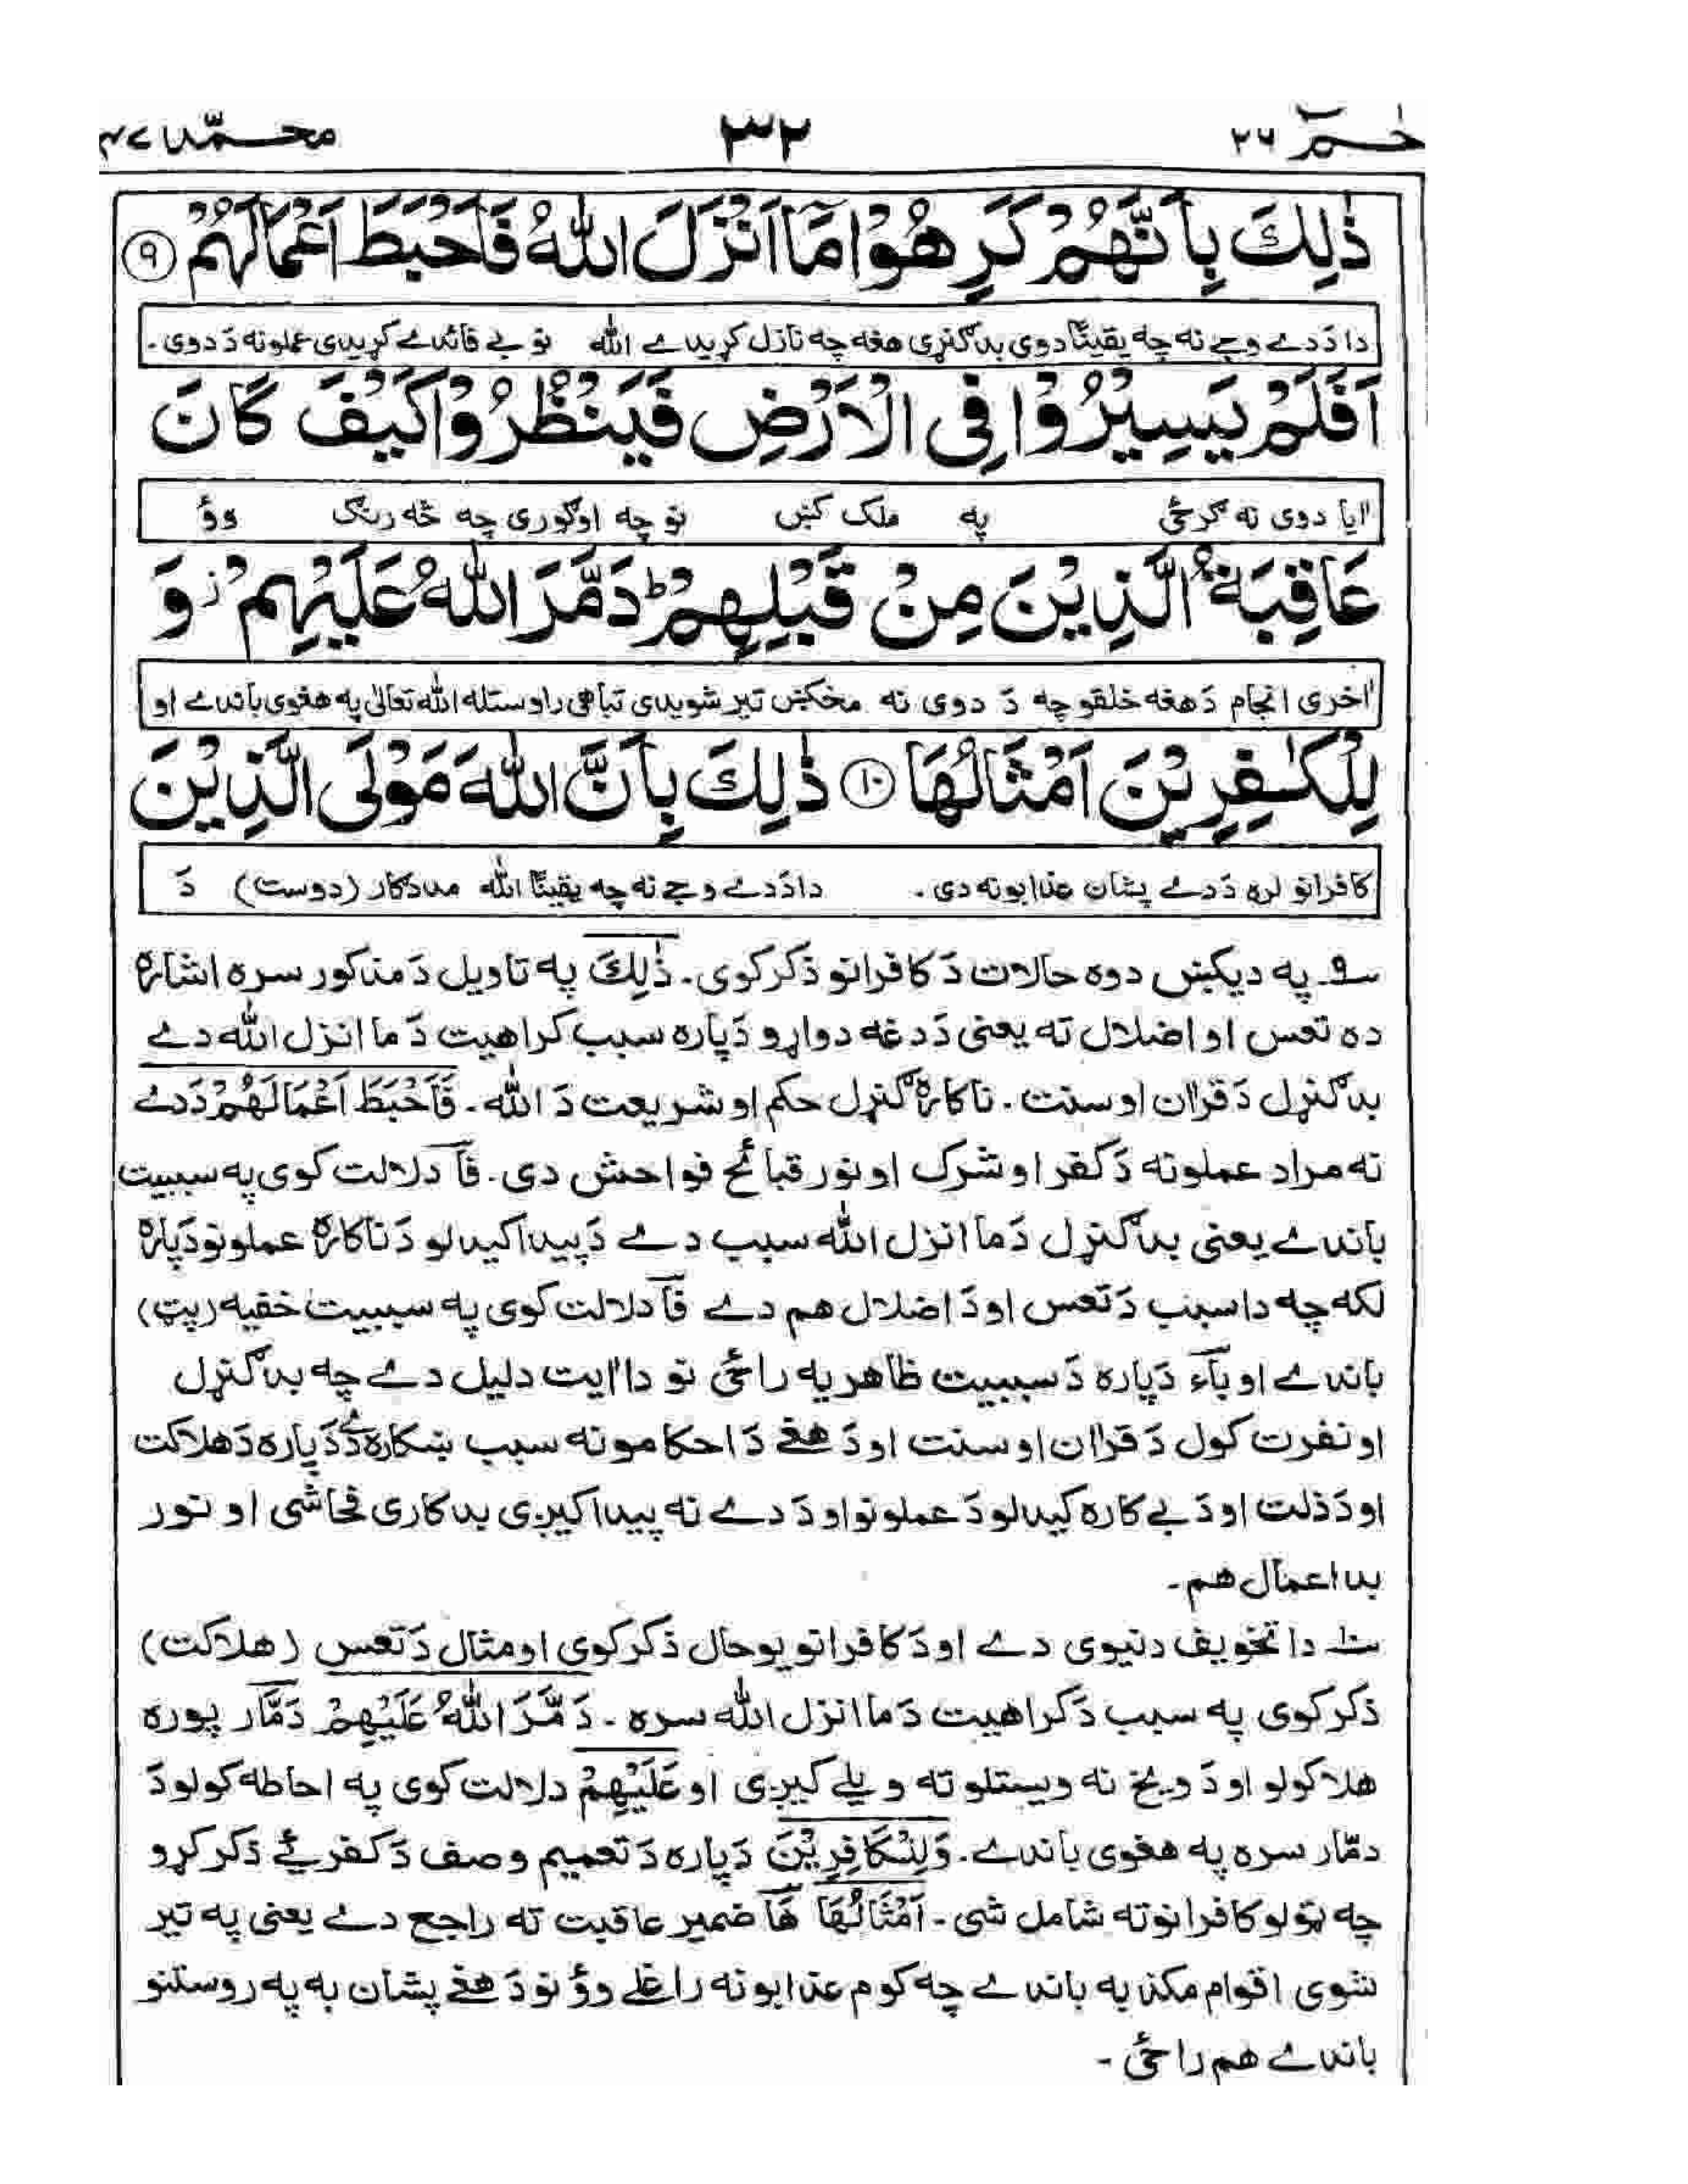 حٰـمٓ ٢٦
٣٢
محمّد ٤٧
ذٰلِكَ بِاَنَّهُمْ كَرِهُوْا مَآ اَنْزَلَ اللّٰهُ فَاَحْبَطَ اَعْمَالَهُمْ ۝٩
دا دَ دے وجے نه چه يقينًا دوى بد ګنړى هغه چه نازل كړيدے الله نو بے فائدے كړيدى عملونه دَ دوى۔
اَفَلَمْ يَسِيْرُوْا فِى الْاَرْضِ فَيَنْظُرُوْا كَيْفَ كَانَ
اٰيا دوى نه ګرځى په ملک كښ نو چه اوګورى چه څه رنګ وؤ
عَاقِبَةُ الَّذِيْنَ مِنْ قَبْلِهِمْ ؕ دَمَّرَ اللّٰهُ عَلَيْهِمْ ؗ وَ
اٰخرى انجام دَ هغه خلقو چه دَ دوى نه مخكښ تير شويدى تباهى راوستله الله تعالىٰ په هغوى باندے او
لِلْكٰفِرِيْنَ اَمْثَالُهَا ۝١٠ ذٰلِكَ بِاَنَّ اللّٰهَ مَوْلَى الَّذِيْنَ
كافرانو لره دَ دے پشان عذابونه دى۔ دا دَ دے وجے نه چه يقينًا الله مددګار (دوست) دَ
سـ٩ـ په ديكښ دوه حالات دَ كافرانو ذكر كوى۔ ذٰلِكَ په تاويل دَ مذكور سره اشاره
ده تعس او اضلال ته يعنى دَ دغه دواړو دَپاره سبب كراهيت دَ ما انزل الله دے
بد ګنړل دَ قرآن او سنت۔ ناكاره ګنړل حكم او شريعت دَ الله۔ فَاَحْبَطَ اَعْمَالَهُمْ دَ دے
نه مراد عملونه دَ كفر او شرک او نور قبائح فواحش دى۔ فَا دلالت كوى په سببيت
باندے يعنى بد ګنړل دَ ما انزل الله سبب دے دَ پيدا كيدلو دَ ناكاره عملونو دَپاره
لكه چه دا سبب دَ تعس او دَ اضلال هم دے فَا دلالت كوى په سببيت خفيه (پټ)
باندے او بَاء دَپاره دَ سببيت ظاهريه راځى نو دا اٰيت دليل دے چه بد ګنړل
او نفرت كول دَ قرآن او سنت او دَ هغے دَ احكامو نه سبب ښكاره دے دَپاره دَ هلاكت
او دَ ذلت او دَ بے كاره كيدلو دَ عملونو او دَ دے نه پيدا كيږى بدكارى فحاشى او نور
بد اعمال هم۔
سـ١٠ـ دا تخويف دنيوى دے او دَ كافرانو يو حال ذكر كوى او مثال دَ تعس (هلاكت)
ذكر كوى په سبب دَ كراهيت دَ ما انزل الله سره۔ دَمَّرَ اللّٰهُ عَلَيْهِمْ دَمَّار پوره
هلاكولو او دَ وبيخ نه ويستلو ته ويلے كيږى او عَلَيْهِمْ دلالت كوى په احاطه كولو دَ
دمّار سره په هغوى باندے۔ وَلِلْكَافِرِيْنَ دَپاره دَ تعميم وصف دَ كفر ئے ذكر كړو
چه ټولو كافرانو ته شامل شى۔ اَمْثَالُهَا هَا ضمير عاقبت ته راجع دے يعنى په تير
شوى اقوام مكذبه باندے چه كوم عذابونه راغلے وؤ نو دَ هغے پشان به په روستنو
باندے هم راځى۔